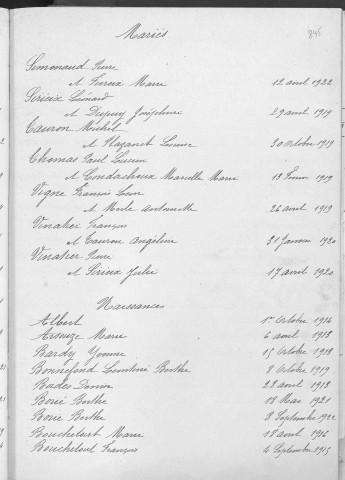 Mariés
845
Simonaud Pierre
et Sirieix Marie 12 avril 1922
Sirieix Léonard
et Dupuy Joséphine 29 avril 1919
Tauron Michel
et Plazanet Louise 30 octobre 1919
Thomas Paul Lucien
et Condachoux Marcelle Marie 13 Fevrier 1919
Vigne François Léon
et Merle Antoinette 26 avril 1919
Vinatier François
et Tauron Angéline 31 Janvier 1920
Vinatier Pierre
et Sirieix Julie 17 avril 1920
Naissances
Albert 1er Octobre 1914
Arseuze Marie 6 avril 1913
Bardy Yvonne 15 Octobre 1918
Bonnefond Berthe 8 Octobre 1919
Bordes 28 avril 1913
Borie Berthe 18 Mai 1921
Borie Berthe 8 Septembre 1922
Boucheteil Marie 18 avril 1916
Boucheteil François 4 Septembre 1915